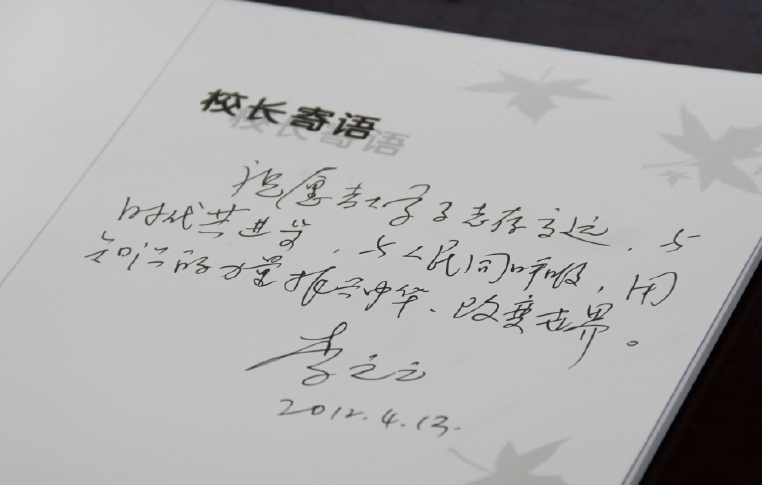 校长寄语
祝愿吉大学子志存高远，与
时代共进步，与人民同呼吸，用
知识的力量振兴中华、改变世界。
李元元
2012.4.13.